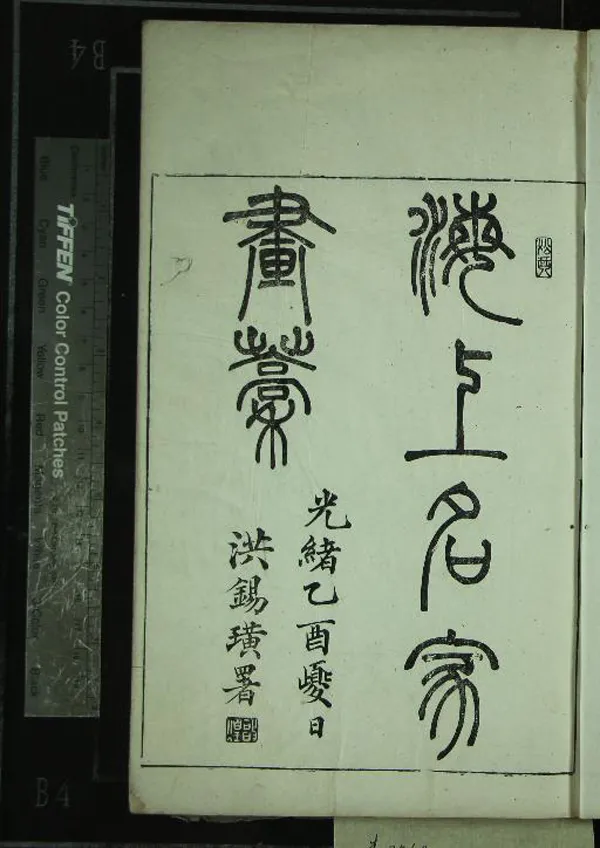 海上名家
畫稾
光緒乙酉夏日
洪錫璜署
TIFFEN Color Control Patches
Blue
Cyan
Green
Yellow
Red
Magenta
Black
B4
B4